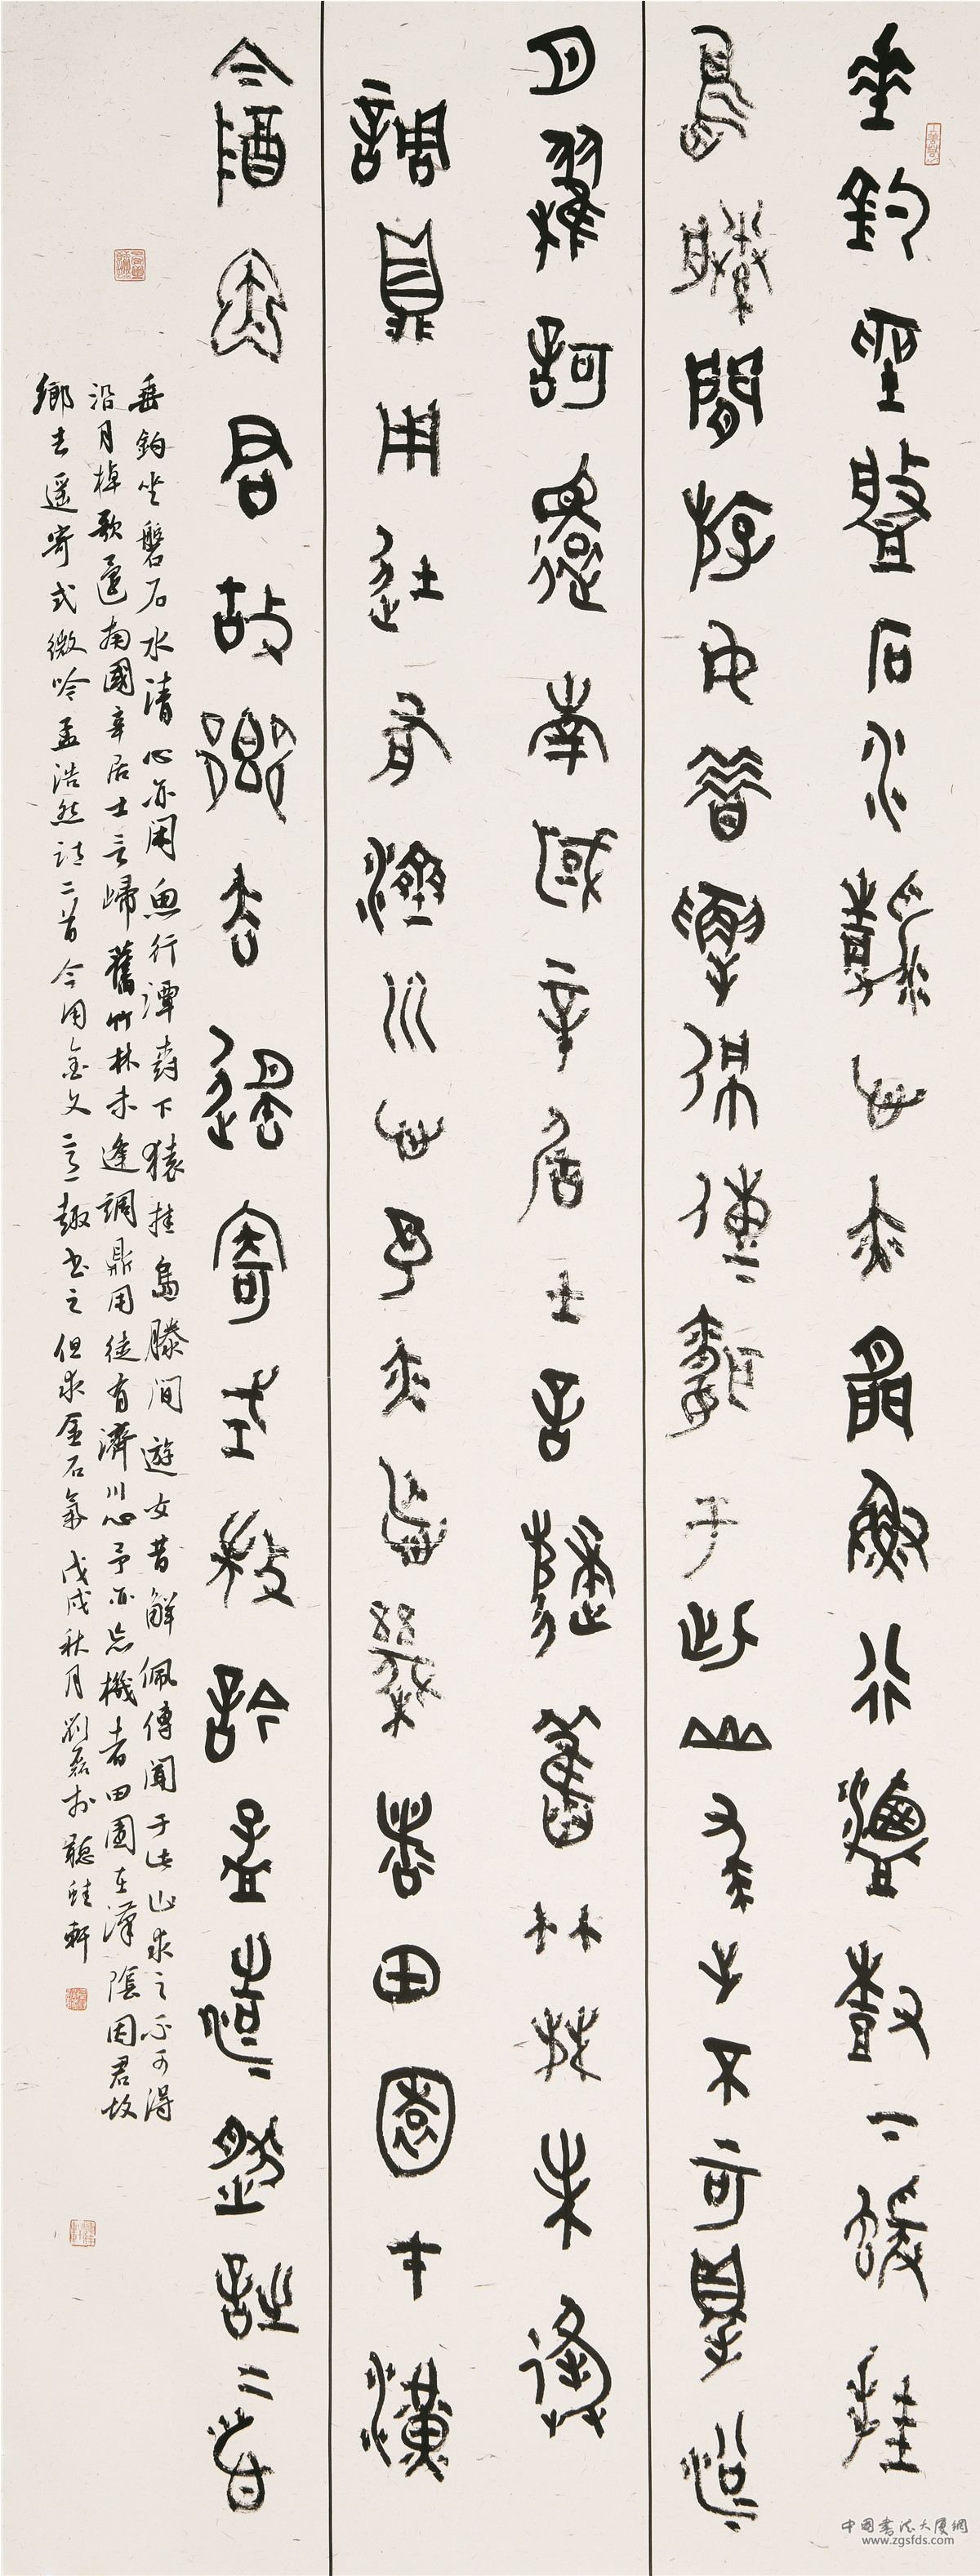 垂釣坐磐石水清心亦閒魚行潭樹下猿挂
島藤間游女昔解佩傳聞于此山求之不可得沿
月棹歌還南國辛居士言歸舊竹林未逢
調鼎用徒有濟川心予亦忘機者田園在漢
陰因君故鄉去遥寄式微吟孟浩然詩二首
垂釣坐磐石水清心亦閑魚行潭樹下猿挂島藤間遊女昔解佩傳聞于此山求之不可得
沿月棹歌還南國辛居士言歸舊竹林未逢調鼎用徒有濟川心予亦忘機者田園在漢陰因君故
鄉去遥寄式微吟孟浩然詩二首今用金文意趣書之但求金石氣戊戌秋月劉磊於聽蛙軒
中国书法大厦网
www.zgsfds.com